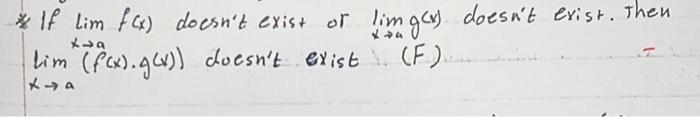 * If lim f(x) doesn't exist or lim g(x) doesn't exist. Then
x→a x→a
lim (f(x).g(x)) doesn't exist (F)
x→a